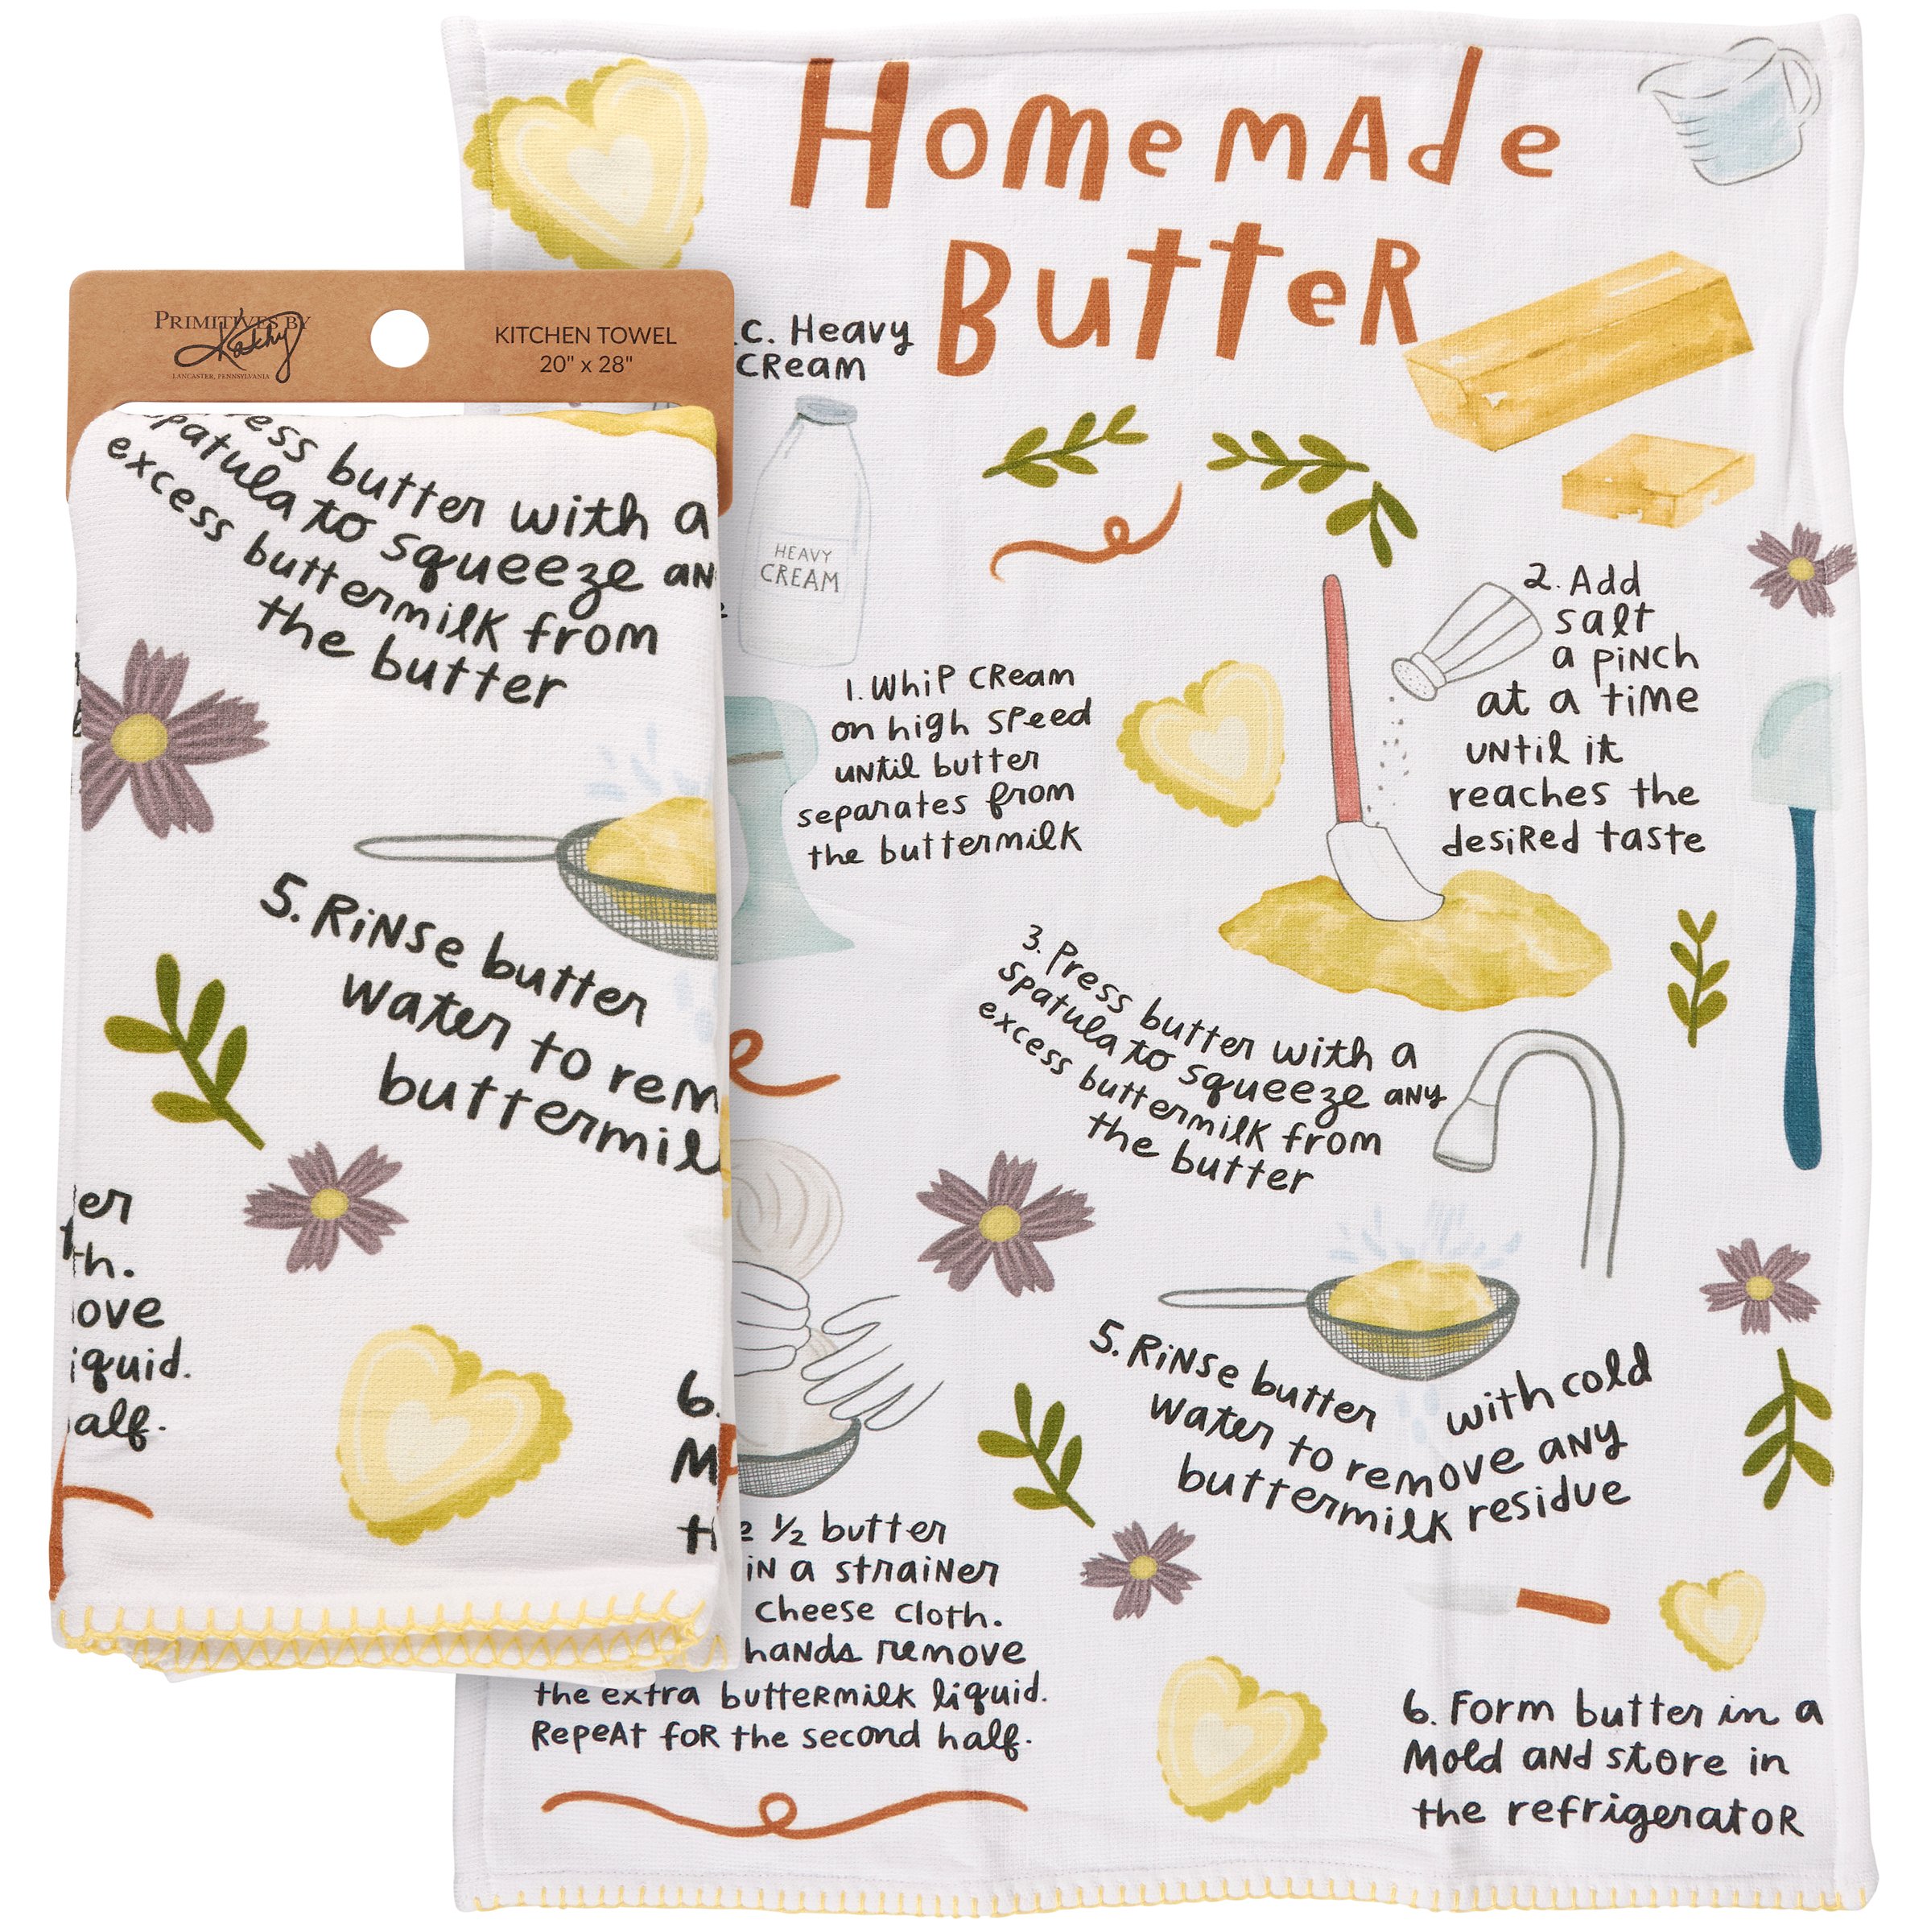 Homemade
Butter
PRIMITIVES BY
Kathy
LANCASTER, PENNSYLVANIA
KITCHEN TOWEL
20" x 28"
C. Heavy
Cream
HEAVY
CREAM
1. Whip Cream
on high speed
until butter
separates from
the buttermilk
2. Add
salt
a pinch
at a time
until it
reaches the
desired taste
3. Press butter with a
spatula to squeeze any
excess buttermilk from
the butter
5. Rinse butter with cold
water to remove any
buttermilk residue
1/2 butter
in a strainer
cheese cloth.
hands remove
the extra buttermilk liquid.
Repeat for the second half.
6. Form butter in a
Mold and store in
the refrigerator
ess butter with a
patula to squeeze an
excess buttermilk from
the butter
5. Rinse butter
water to rem
buttermil
er
th.
ove
iquid.
alf.
6.
M
th